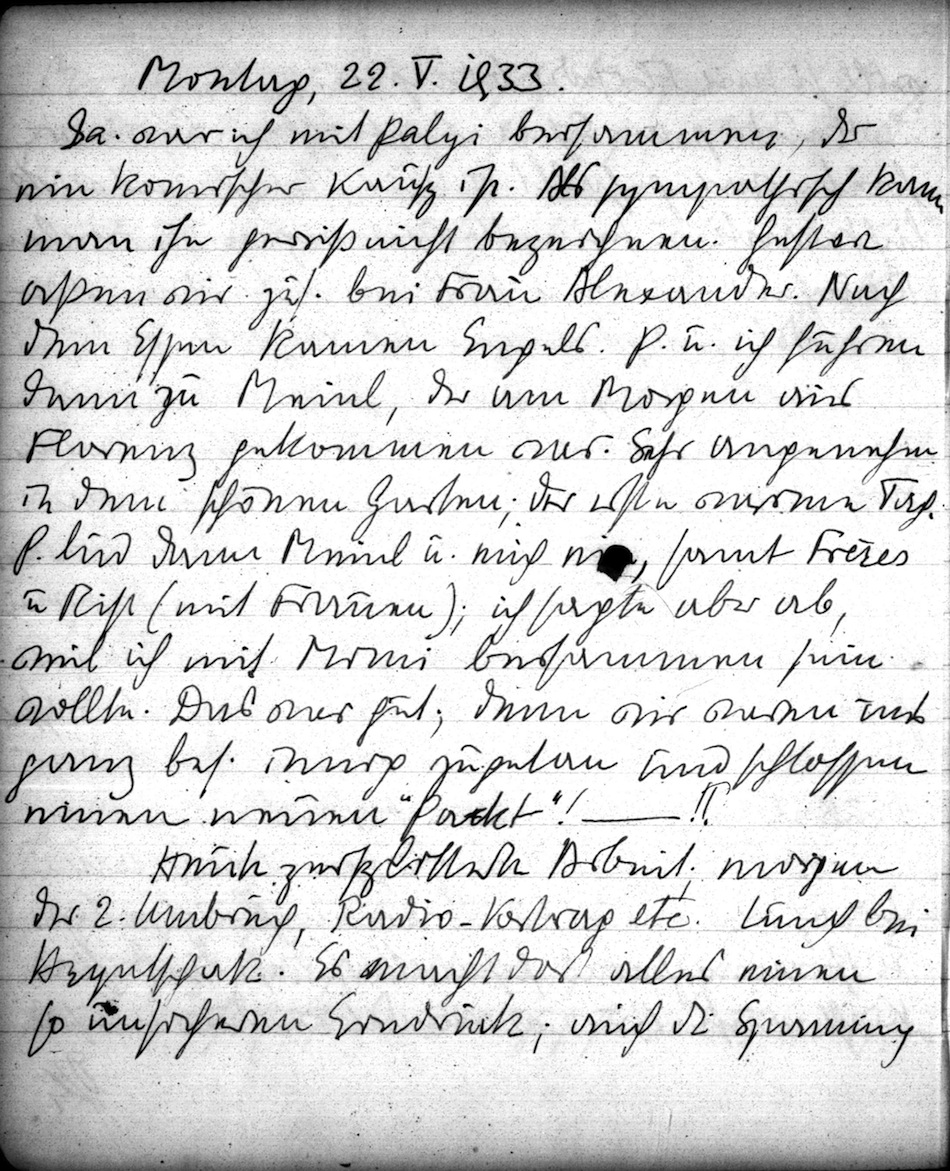 Montag, 22. V. 1933.
Sa. war ich mit Palyi beisammen, der
ein komischer Kauz ist. Als sympathisch kann
man ihn gewiß nicht bezeichnen. Gestern
aßen wir zus. bei Frau Alexander. Nach
dem Essen kamen Engels. P. u. ich fuhren
dann zu Meinl, der am Morgen aus
Florenz gekommen war. Sehr angenehm
in dem schönen Garten; der erste warme Tag.
P. lud dann Meinl u. mich ein, samt Frères
u Rist (mit Frauen); ich sagte aber ab,
weil ich mit Mimi beisammen sein
wollte. Das war gut; denn wir waren uns
ganz bes. innig zugetan und schlossen
einen neuen "Pakt"! — !!
Heute zersplitterte Arbeit; morgen
der 2. Umbruch, Radio-Vortrag etc. Lunch bei
. Es macht das alles einen
so unsicheren Eindruck; auch die Spannung